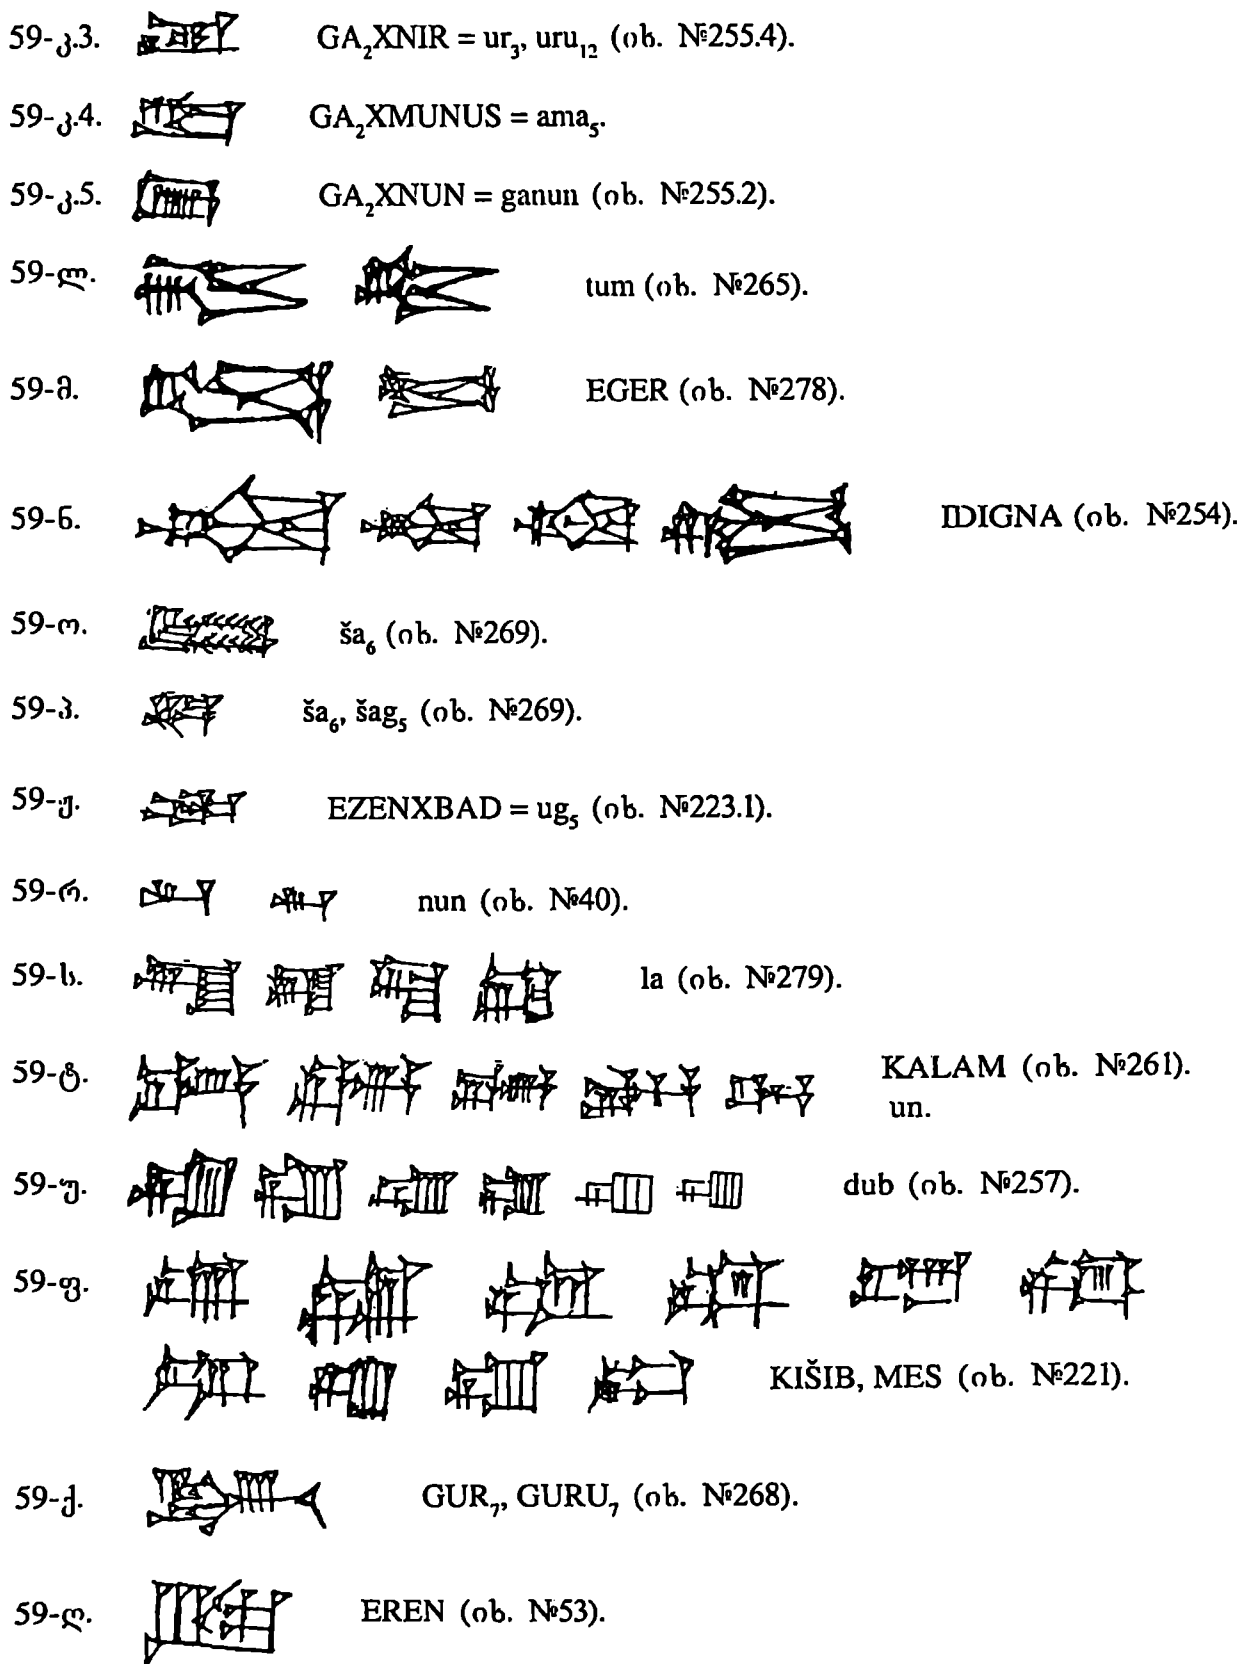 59-კ.3. GA₂XNIR = ur₃, uru₁₂ (იხ. №255.4).
59-კ.4. GA₂XMUNUS = ama₅.
59-კ.5. GA₂XNUN = ganun (იხ. №255.2).
59-ლ. tum (იხ. №265).
59-მ. EGER (იხ. №278).
59-ნ. IDIGNA (იხ. №254).
59-ო. ša₆ (იხ. №269).
59-პ. ša₆, šag₅ (იხ. №269).
59-ჟ. EZENXBAD = ug₅ (იხ. №223.1).
59-რ. nun (იხ. №40).
59-ს. la (იხ. №279).
59-ტ. KALAM (იხ. №261).
un.
59-უ. dub (იხ. №257).
59-ფ.
KIŠIB, MES (იხ. №221).
59-ქ. GUR₇, GURU₇ (იხ. №268).
59-ღ. EREN (იხ. №53).